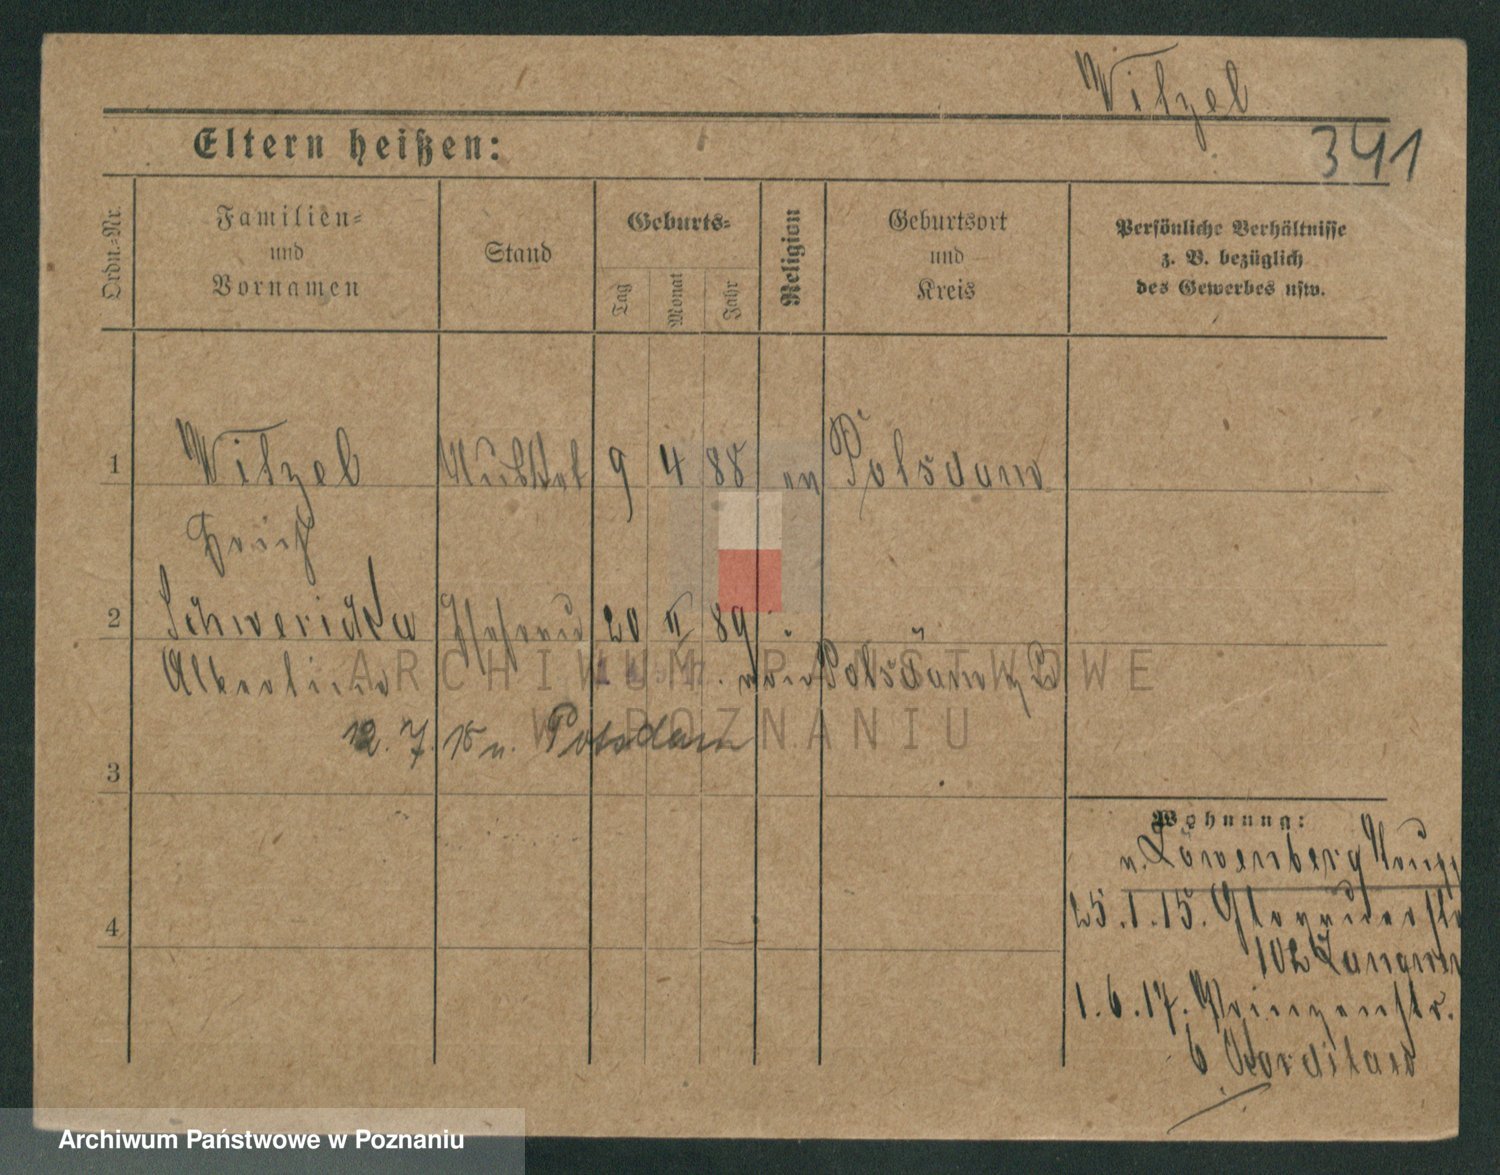 Witzel
341
Eltern heißen:
Ordn.=Nr.
Familien=
und
Vornamen
Stand
Geburts=
Tag
Monat
Jahr
Religion
Geburtsort
und
Kreis
Persönliche Verhältnisse
z. B. bezüglich
des Gewerbes usw.
1 Witzel 9 4 88 ev Potsdam
2 Schwerickta Ehefrau 20 II 89
Albertine Potsdam
ARCHIWUM PAŃSTWOWE
W POZNANIU
12. 7. 15 n. Potsdam
3
Wohnung:
v. Löwenberg
25.1.15. Glogauerstr
102
4
1.6.17. Prinzenstr.
6
Archiwum Państwowe w Poznaniu